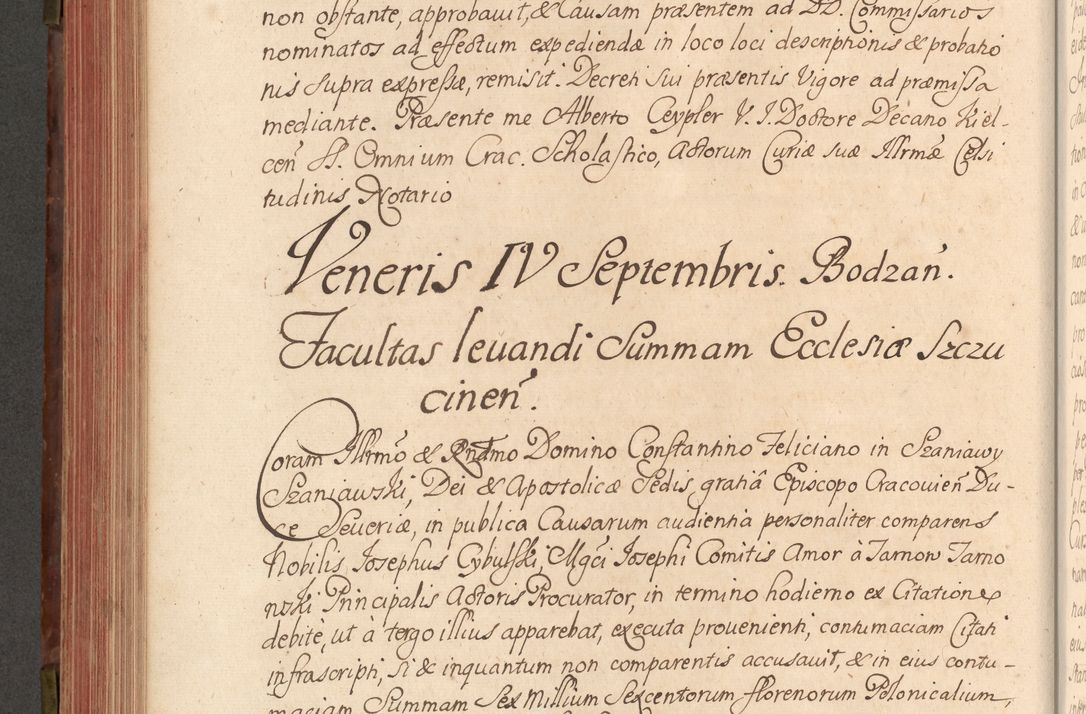 non obstante, approbavit, & Causam præsentem ad DD. Commissarios
nominatos ad effectum expediendæ in loco loci descriptionis & probatio
nis supra expressæ, remisit. Decreti sui præsentis Vigore ad præmissa
mediante. Præsente me Alberto Ceypler V. I. Doctore Decano Kiel-
ceñ SS. Omnium Crac. Scholastico, Actorum Curiæ suæ Illrmæ Celsi
tudinis Notario
Veneris IV Septembris. Bodzañ.
Facultas levandi Summam Ecclesiæ Szczu
cineñ.
Coram Illrmo & Rndmo Domino Constantino Feliciano in Szaniawy
Szaniawski, Dei & Apostolicæ Sedis gratiâ Episcopo Cracovieñ Du-
ce Severiæ, in publica Causarum audientia personaliter comparens
Nobilis Josephus Cybulski, Mgci Josephi Comitis Amor à Tarnow Tarno
wski Principalis Actoris Procurator, in termino hodierno ex Citatione
debitè, ut à tergo illius apparebat, executa provenienti, contumaciam Citati
infrascripti, si & inquantum non comparentis accusavit, & in eius contu-
maciam Summam Sex Millium Sexcentorum florenorum Polonicalium,